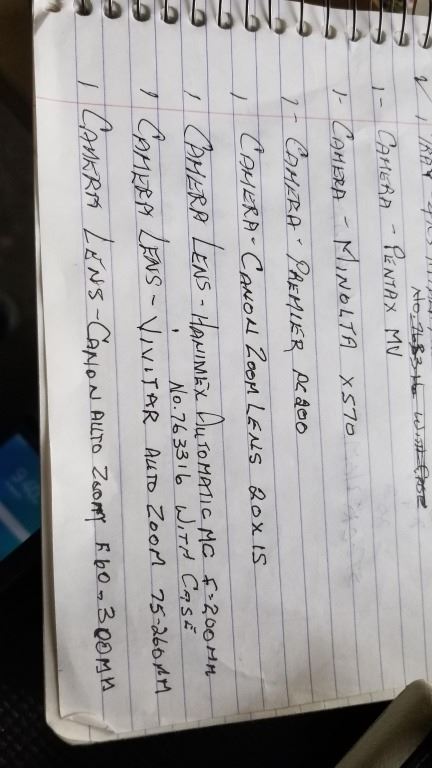 1- CAMERA - PENTAX MV
1- CAMERA - MINOLTA X570
1- CAMERA - PREMIER PC200
1 CAMERA - CANON ZOOM LENS 20X15
1 CAMERA LENS - HANIMEX AUTOMATIC MC F=200MM
No. 763316 WITH CASE
1 CAMERA LENS - VIVITAR AUTO ZOOM 75-260MM
1 CAMERA LENS - CANON AUTO ZOOM F60-300MM